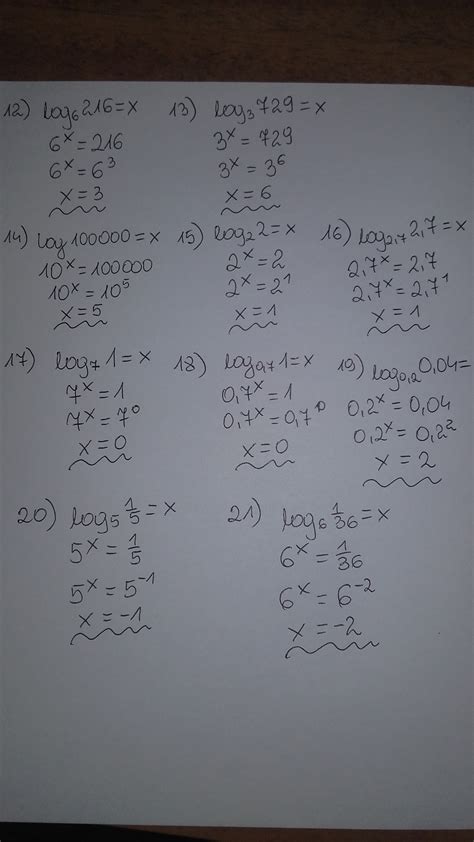 12) log₆216=x
6ˣ=216
6ˣ=6³
x=3
13) log₃729=x
3ˣ=729
3ˣ=3⁶
x=6
14) log100000=x
10ˣ=100000
10ˣ=10⁵
x=5
15) log₂2=x
2ˣ=2
2ˣ=2¹
x=1
16) log₂,₇2,7=x
2,7ˣ=2,7
2,7ˣ=2,7¹
x=1
17) log₇1=x
7ˣ=1
7ˣ=7⁰
x=0
18) log₀,₇1=x
0,7ˣ=1
0,7ˣ=0,7⁰
x=0
19) log₀,₂0,04=
0,2ˣ=0,04
0,2ˣ=0,2²
x=2
20) log₅1/5=x
5ˣ=1/5
5ˣ=5⁻¹
x=-1
21) log₆1/36=x
6ˣ=1/36
6ˣ=6⁻²
x=-2